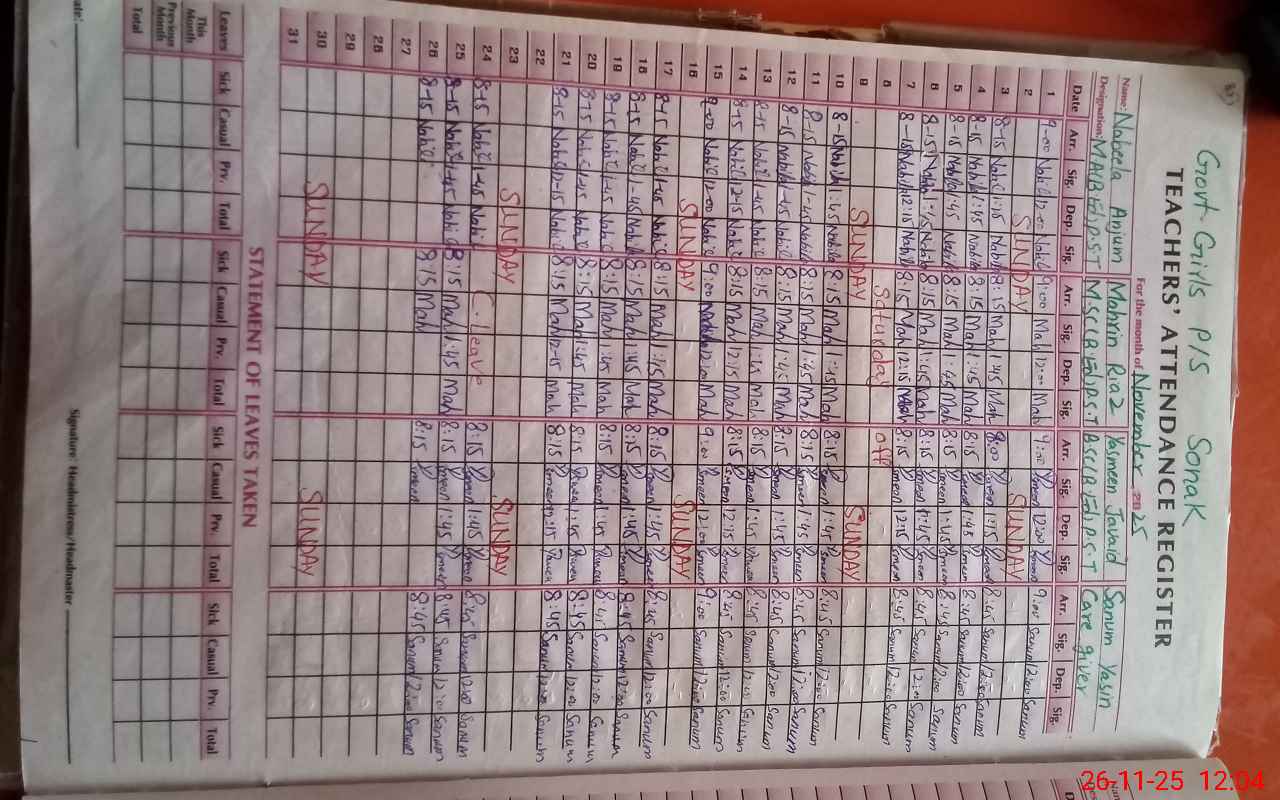 Govt Girls P/S Sonak
TEACHERS' ATTENDANCE REGISTER
For the month of November 2025
Name: Nabeela Anjum Mahrin Riaz Yasmeen Javaid Sanum Yasin
Designation: MA(B.Ed) P.S.T MSC(B.Ed) P.S.T BSC(B.Ed) P.S.T Care giver
Date Arr. Sig. Dep. Sig. Arr. Sig. Dep. Sig. Arr. Sig. Dep. Sig. Arr. Sig. Dep. Sig.
1 9-00 Nabil 12-00 Nabil 9:00 Mah 12:00 Mah 9:00 Ysmeen 12:00 Ysmeen 9:00 Sanum 12:00 Sanum
2 SUNDAY SUNDAY
3 8-15 Nabil 1:15 Nabil 8:15 Mah 1:45 Mah 8:00 Ysmeen 1:15 Ysmeen 8:45 Sanum 12:00 Sanum
4 8-15 Nabil 1:45 Nabil 8:15 Mah 1:45 Mah 8:15 Ysmeen 1:45 Ysmeen 8:45 Sanum 12:00 Sanum
5 8-15 Nabil 1:45 Nabil 8:15 Mah 1:45 Mah 8:15 Ysmeen 1:45 Ysmeen 8:45 Sanum 12:00 Sanum
6 8-15 Nabil 1:45 Nabil 8:15 Mah 1:45 Mah 8:15 Ysmeen 1:45 Ysmeen 8:45 Sanum 12:00 Sanum
7 8-15 Nabil 12:15 Nabil 8:15 Mah 12:15 Mah 8:15 Ysmeen 12:15 Ysmeen 8:45 Sanum 12:00 Sanum
8 Saturday off
9 SUNDAY SUNDAY
10 8-15 Nabil 1:45 Nabil 8:15 Mah 1:45 Mah 8:15 Ysmeen 1:45 Ysmeen 8:45 Sanum 12:00 Sanum
11 8-15 Nabil 1-45 Nabil 8:15 Mah 1:45 Mah 8:15 Ysmeen 1:45 Ysmeen 8:45 Sanum 12:00 Sanum
12 8-15 Nabil 1-45 Nabil 8:15 Mah 1:45 Mah 8:15 Ysmeen 1:45 Ysmeen 8:45 Sanum 12:00 Sanum
13 8-15 Nabil 1-45 Nabil 8:15 Mah 1:45 Mah 8:15 Ysmeen 1:45 Ysmeen 8:45 Sanum 12:00 Sanum
14 8-15 Nabil 12-15 Nabil 8:15 Mah 12:15 Mah 8:15 Ysmeen 12:15 Ysmeen 8:45 Sanum 12:00 Sanum
15 9-00 Nabil 12-00 Nabil 9:00 Mah 12:00 Mah 9:00 Ysmeen 12:00 Ysmeen 9:00 Sanum 12:00 Sanum
16 SUNDAY SUNDAY
17 8-15 Nabil 1-45 Nabil 8:15 Mah 1:45 Mah 8:15 Ysmeen 1:45 Ysmeen 8:45 Sanum 12:00 Sanum
18 8-15 Nabil 1-45 Nabil 8:15 Mah 1:45 Mah 8:15 Ysmeen 1:45 Ysmeen 8:45 Sanum 12:00 Sanum
19 8-15 Nabil 1-45 Nabil 8:15 Mah 1:45 Mah 8:15 Ysmeen 1:45 8:45 Sanum 12:00 Sanum
20 8-15 Nabil 1-45 Nabil 8:15 Mah 1:45 Mah 8:15 1:45 8:45 Sanum 12:00 Sanum
21 8-15 Nabil 12-15 Nabil 8:15 Mah 12-15 Mah 8:15 Ysmeen 12:15 8:45 Sanum 12:00 Sanum
22
23 SUNDAY SUNDAY
24 8-15 Nabil 1-45 Nabil C. Leave 8:15 Ysmeen 1:45 Ysmeen 8:45 Sanum 12:00 Sanum
25 8-15 Nabil 1-45 Nabil 8:15 Mah 1:45 Mah 8:15 Ysmeen 1:45 Ysmeen 8:45 Sanum 12:00 Sanum
26 8-15 Nabil 8:15 Mah 8:15 Ysmeen 8:45 Sanum 12:00 Sanum
27
28
29
30 SUNDAY SUNDAY
31
STATEMENT OF LEAVES TAKEN
Leaves Sick Casual Prv. Total Sick Casual Prv. Total Sick Casual Prv. Total Sick Casual Prv. Total
This Month
Previous Month
Total
Signature: Headmistress/Headmaster
26-11-25 12:04